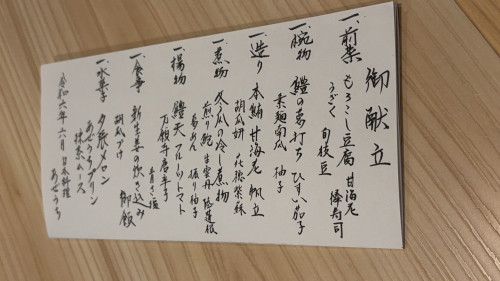 御献立
一、前菜 もろこし豆腐 甘海老
うざく 旬枝豆 棒寿司
一、椀物 鱧の葛打ち ひすい茄子
素麺南瓜 柚子
一、造り 本鮪 甘海老 帆立
花穂紫蘇
一、煮物 冬瓜の冷し煮物
煎り鮑 生雲丹 陸蓮根
葛あん 振り柚子
一、揚物 鱧天 フルーツトマト
万願寺唐辛子
青さ塩
一、食事 新生姜の炊き込み御飯
胡瓜づけ
一、水菓子 夕張メロン
あぜうちプリン
抹茶ムース
令和六年六月 日本料理 あぜうち